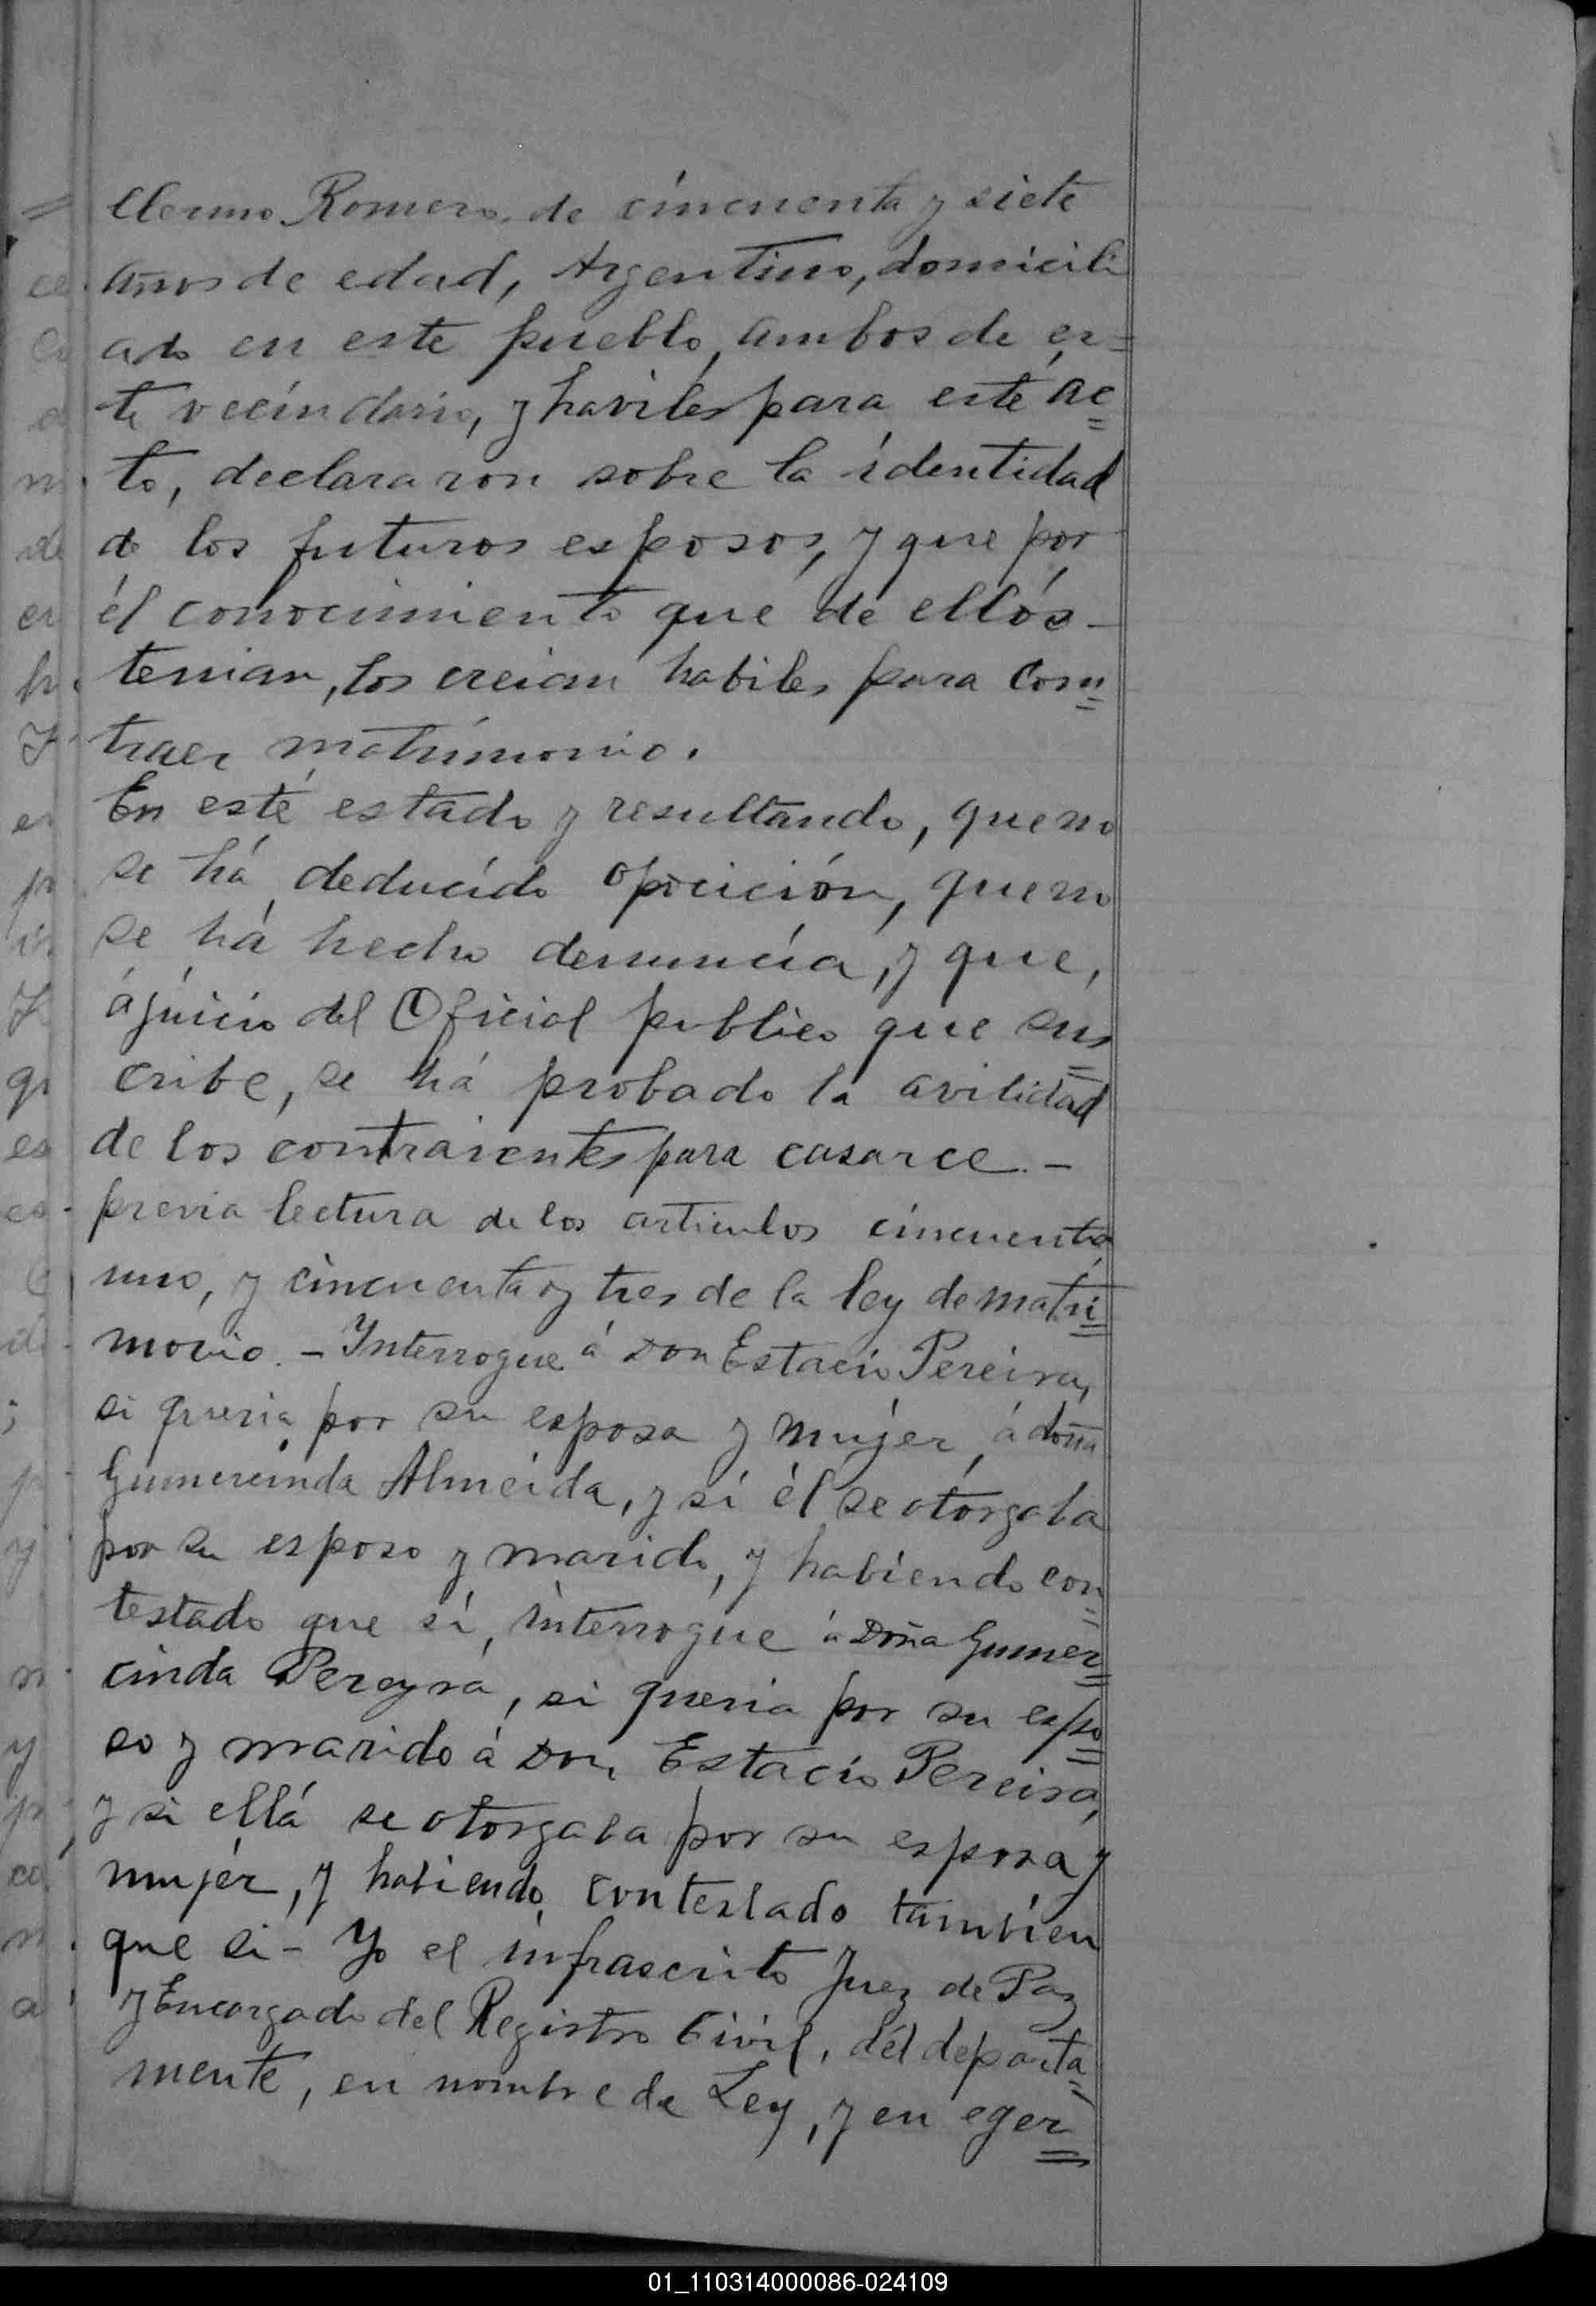 llermo Romero, de cincuenta y siete
años de edad, Argentino, domicili
ado en este pueblo, ambos de es=
te vecindario, y haviles para esté ac=
to, declararon sobre la identidad
de los futuros esposos, y que por
él conocimiento que de ellós -
tenian, los creian habiles para con=
traer matrimonio.
En esté estado y resultando, que no
se há deducido opocición, que no
se há hecho denuncia, y que,
á juicio del Oficial publico que sus=
cribe, se há probado la avilidad
de los contraientes para casarce. -
previa lectura de los articulos cincuenta
uno, y cincuenta y tres de la ley de matri=
monio. - Interrogue á Don Estacio Pereira,
si queria por su esposa y mujer á doña
Gumercinda Almeida, y si él se otorgaba
por su esposo y marido, y habiendo con=
testado que si, interrogue á Doña Gumer=
cinda Pereyra, si queria por su espo=
so y marido á Don Estacio Pereira,
y si ellá se otorgaba por su esposa y
mujer, y habiendo contestado tambien
que si - Yo el infrascrito Juez de Paz
y Encargado del Registro Civil, dél departa=
mente, en nombre de Ley, y en eger=
01_110314000086-024109